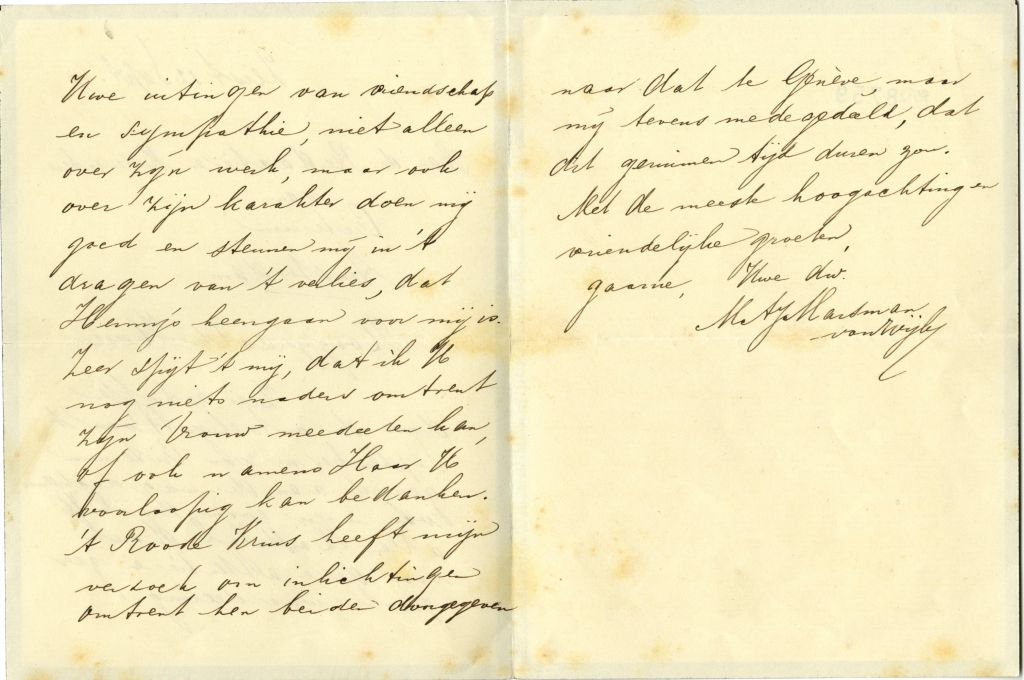 Uwe uitingen van vriendschap
en sympathie, niet alleen
over zijn werk, maar ook
over zijn karakter doen mij
goed en steunen mij in 't
dragen van 't verlies, dat
Henny's heengaan voor mij is.
Zeer spijt 't mij, dat ik U
nog niets naders omtrent
zijn Vrouw meedeelen kan,
of ook namens Haar U
voorloopig kan bedanken.
't Roode Kruis heeft mijn
verzoek om inlichtingen
omtrent hen beiden doorgegeven
naar dat te Genève maar
mij tevens medegedeeld, dat
dit geruimen tijd duren zou.
Met de meeste hoogachting en
vriendelijke groeten,
gaarne, Uwe dw.
Marsman
van Wijk